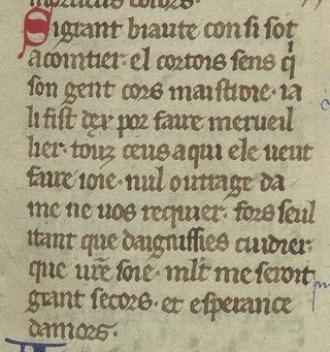 Si grant biaute con si sot
acointier· el cortois sens q̇
son gent cors maistroie· ia
li fist dex por faire merueil
lier· touz ceus a qui ele ueut
faire ioie· nul outrage da
me ne uos requier· fors seul
itant que daignissies cuidier·
que ur̄e soie· ml̄t me seroit
grant secors· et esperance
damors·